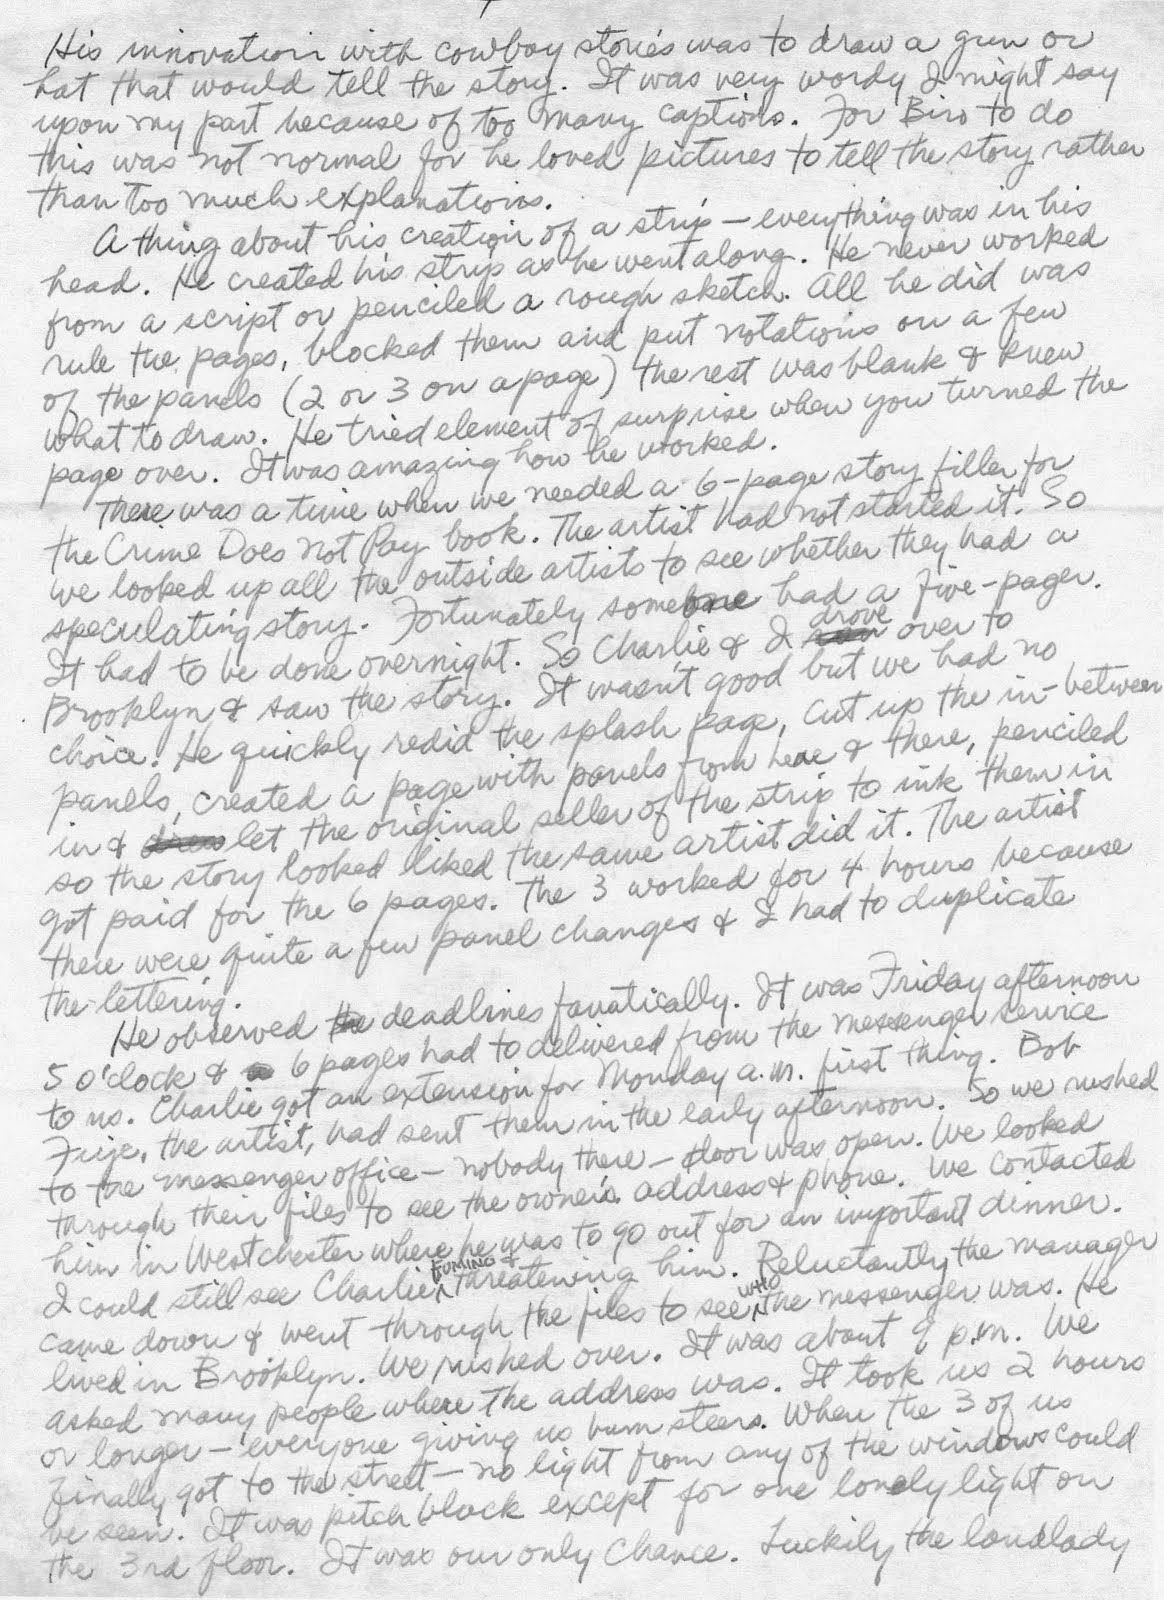 His innovation with cowboy stories was to draw a gun or
hat that would tell the story. It was very wordy I might say
upon my part because of too many captions. For Biro to do
this was not normal for he loved pictures to tell the story rather
than too much explanations.
A thing about his creation of a strip — everything was in his
head. He created his strip as he went along. He never worked
from a script or penciled a rough sketch. All he did was
rule the pages, blocked them and put notations on a few
of the panels (2 or 3 on a page) the rest was blank & knew
what to draw. He tried element of surprise when you turned the
page over. It was amazing how he worked.
There was a time when we needed a 6-page story filler for
the Crime Does Not Pay book. The artist had not started it. So
we looked up all the outside artists to see whether they had a
speculating story. Fortunately someone had a five-pager.
It had to be done overnight. So Charlie & I drove over to
Brooklyn & saw the story. It wasn't good but we had no
choice. He quickly redid the splash page, cut up the in-between
panels, created a page with panels from here & there, penciled
in & let the original seller of the strip to ink them in
so the story looked liked the same artist did it. The artist
got paid for the 6 pages. The 3 worked for 4 hours because
there were quite a few panel changes & I had to duplicate
the lettering.
He observed the deadlines fanatically. It was Friday afternoon
5 o'clock & 6 pages had to delivered from the messenger service
to us. Charlie got an extension for Monday a.m. first thing. Bob
Fuje, the artist, had sent them in the early afternoon. So we rushed
to the messenger office — nobody there — door was open. We looked
through their files to see the owner's address & phone. We contacted
him in Westchester where he was to go out for an important dinner.
I could still see Charlie FUMING & threatening him. Reluctantly the manager
came down & went through the files to see WHO the messenger was. He
lived in Brooklyn. We rushed over. It was about 9 p.m. We
asked many people where the address was. It took us 2 hours
or longer — everyone giving us bum steers. When the 3 of us
finally got to the street — no light from any of the windows could
be seen. It was pitch black except for one lonely light on
the 3rd floor. It was our only chance. Luckily the landlady